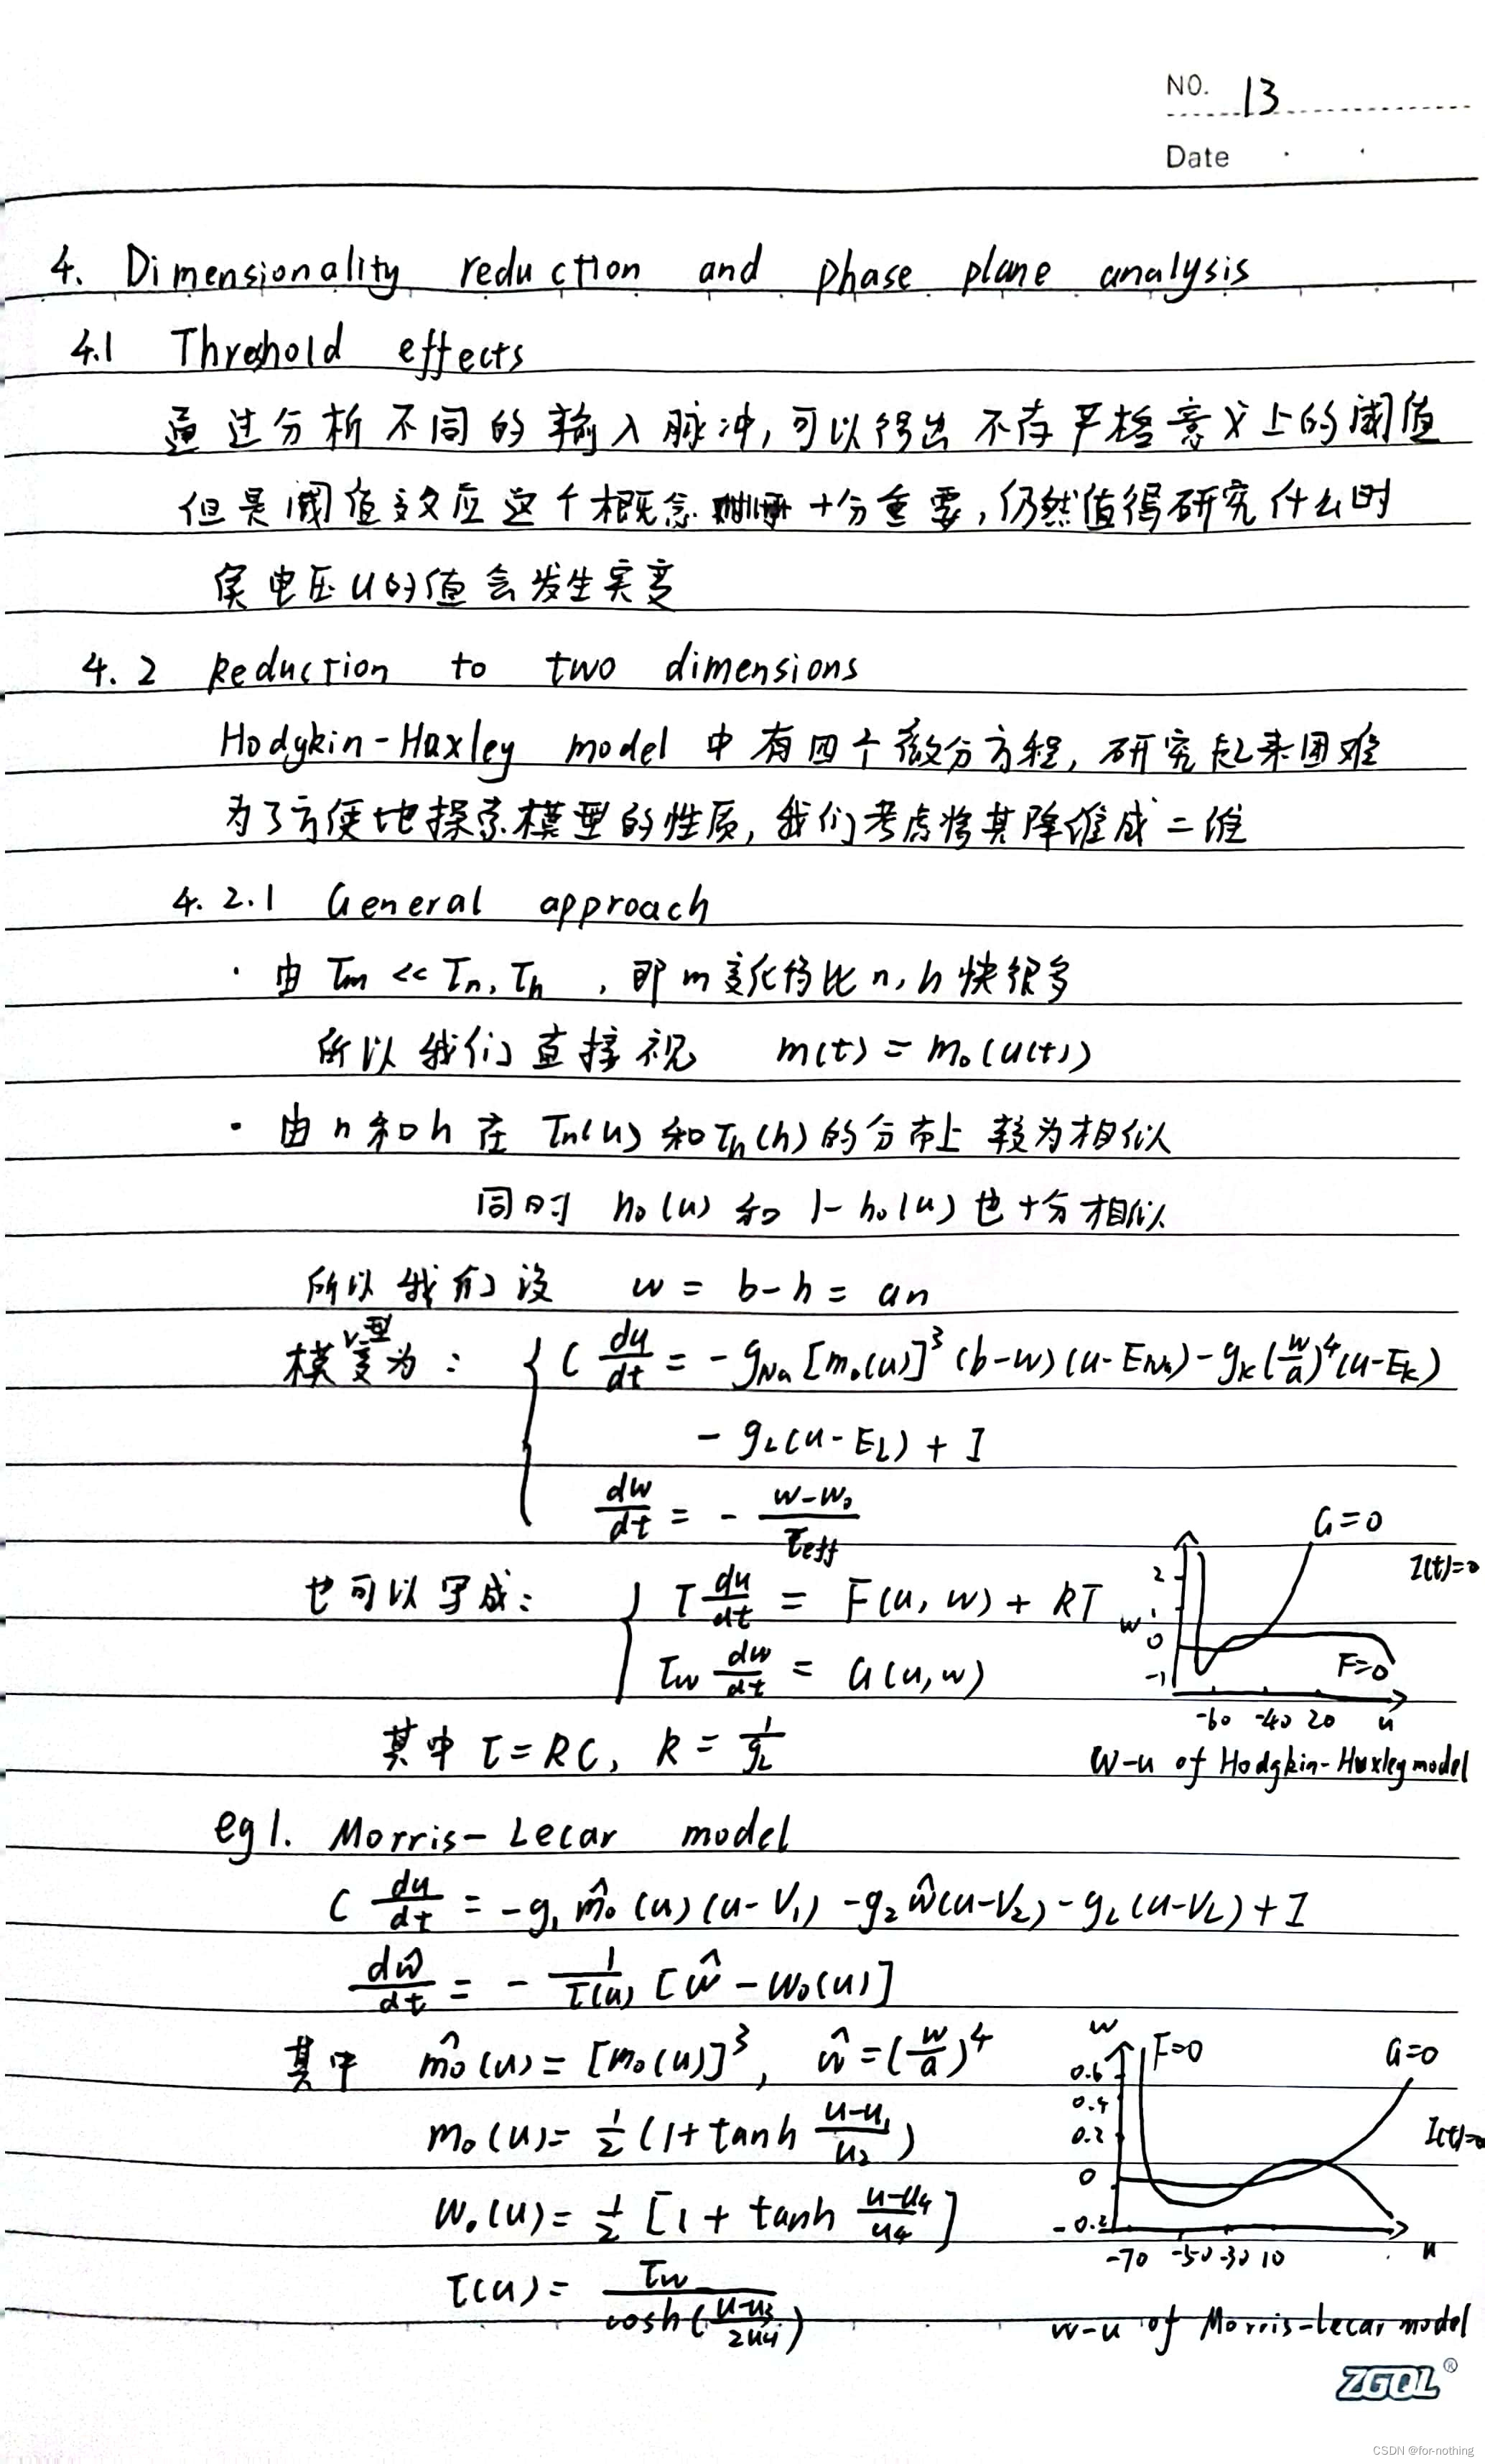 NO. 13
Date
4. Dimensionality reduction and phase plane analysis
4.1 Threshold effects
通过分析不同的输入脉冲,可以得出不存严格意义上的阈值
但是阈值效应这个概念 十分重要,仍然值得研究什么时
候电压u的值会发生突变
4.2 Reduction to two dimensions
Hodgkin-Haxley model 中有四个微分方程, 研究起来困难
为了方便地探索模型的性质, 我们考虑将其降维成二维
4.2.1 General approach
· 由 τm << τn, τh , 即 m变化得比 n, h 快很多
所以我们直接视 m(t) = m₀(u(t))
· 由 n 和 h 在 τn(u) 和 τh(h) 的分布上 较为相似
同时 n₀(u) 和 1-h₀(u) 也十分相似
所以我们设 w = b-h = an
模型变为: { C du/dt = -gNa [m₀(u)]³ (b-w)(u-ENa) - gK (w/a)⁴ (u-EK)
- gL(u-EL) + I
dw/dt = - (w-w₀)/τeff
也可以写成: { τ du/dt = F(u, w) + RI
τw dw/dt = G(u, w)
其中 τ=RC, R = 1/gL
G=0
I(t)=0
2
1
w
0
-1
F=0
-60 -40 20 u
w-u of Hodgkin-Huxley model
eg1. Morris-Lecar model
C du/dt = -g₁ m̂₀(u)(u-V₁) - g₂ŵ(u-V₂) - gL(u-VL) + I
dŵ/dt = - 1/τ(u) [ŵ - w₀(u)]
其中 m̂₀(u) = [m₀(u)]³, ŵ = (w/a)⁴
m₀(u) = 1/2 (1+tanh (u-u₁)/u₂)
w₀(u) = 1/2 [1 + tanh (u-u₄)/u₄]
τ(u) = τw/cosh((u-u₃)/2u₄)
w
F=0
G=0
0.6
0.4
0.2
I(t)=0
0
-0.2
-70 -50 -30 10 u
w-u of Morris-Lecar model
ZGQL®
CSDN @for-nothing